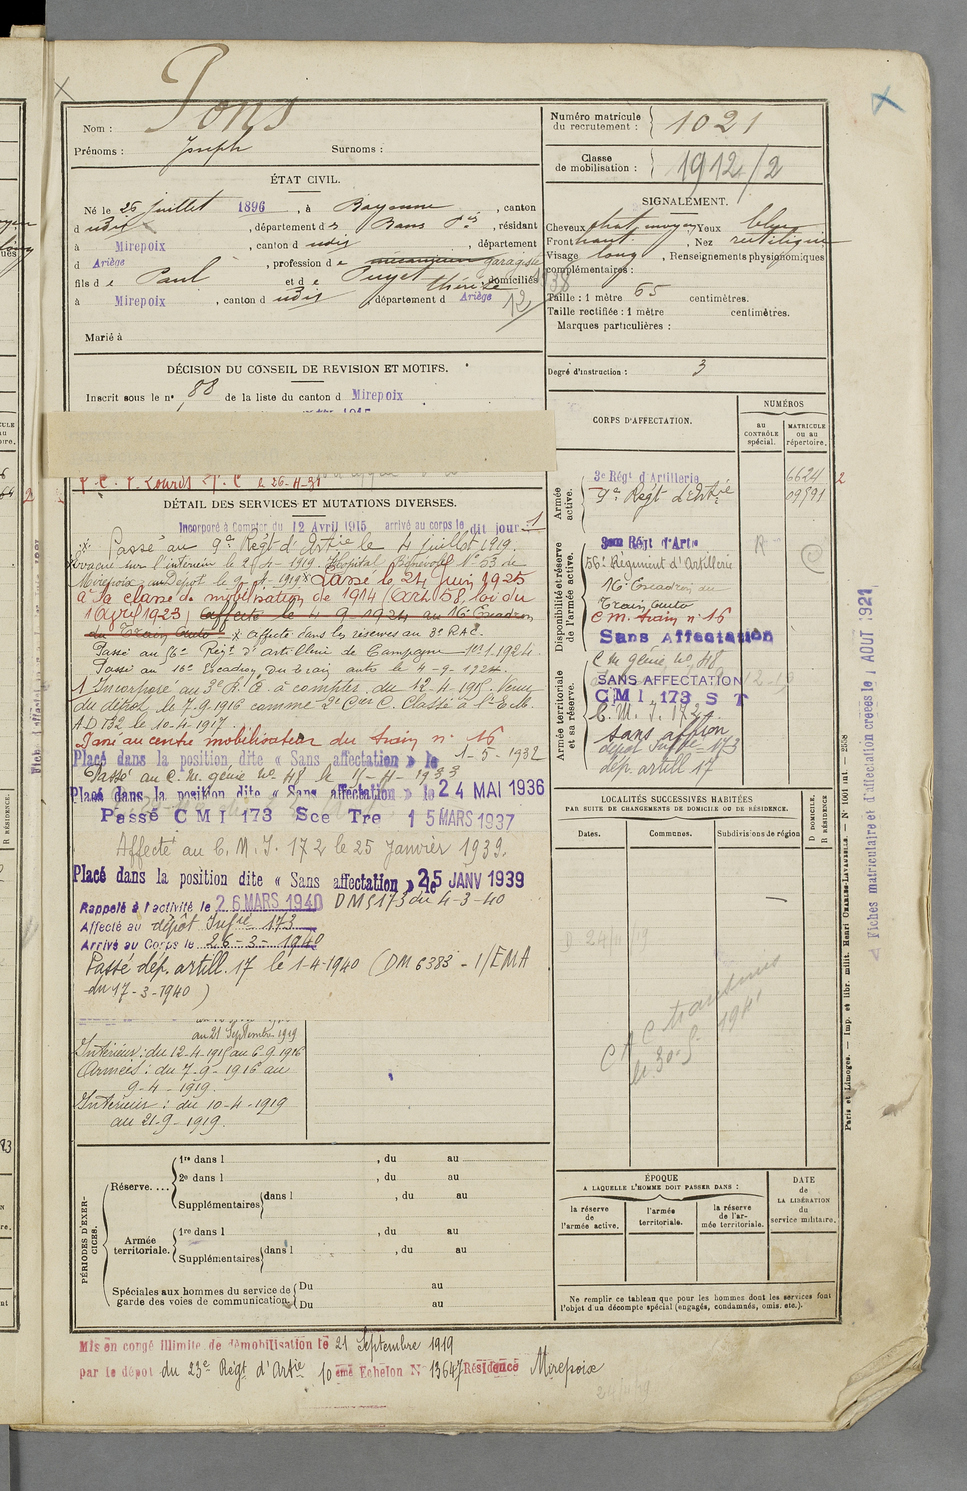 Pons
Nom :
Prénoms : Joseph Surnoms :
Numéro matricule du recrutement : 1021
Classe de mobilisation : 1912/2
ÉTAT CIVIL.
Né le 26 juillet 1896, à Bayonne, canton
d udit, département des Basses Pées, résidant
à Mirepoix, canton d udit, département
d Ariège, profession de garagiste
fils de Paul et de Puget domiciliés
à Mirepoix, canton d udit, département d Ariège
12
Marié à
SIGNALEMENT.
Cheveux chat. moyen Yeux bleu
Front haut, Nez rectiligne
Visage long, Renseignements physionomiques
complémentaires :
Taille : 1 mètre 65 centimètres.
Taille rectifiée : 1 mètre centimètres.
Marques particulières :
Degré d'instruction : 3
DÉCISION DU CONSEIL DE REVISION ET MOTIFS.
Inscrit sous le n° 88 de la liste du canton d Mirepoix
DÉTAIL DES SERVICES ET MUTATIONS DIVERSES.
Incorporé à Compter du 12 Avril 1915 arrivé au corps le dit jour 1
Passé au 9e Régt d'Artie le 4 juillet 1919.
Evacué sur l'intérieur le 2-4-1919. Hopital Bénévole N° 53 de
Mirepoix, au Dépot le 9-4-1919 x Passé le 24 juin 1925
à la classe de mobilisation de 1914 (Art. 58, loi du
1er Avril 1923) affecté le 4-9-1924 au 16e Escadron
du Train Auto x Affecté dans les réserves au 3e RAC.
Passé au 56e Régt d'artillerie de Campagne 1er-1-1924.
Passé au 16e Escadron du train auto le 4-9-1924.
1 Incorporé au 3e R.A. à compter du 12-4-1915. Venu
du dépot le 7-9-1916 comme 2e Cer C. Classé à l'E.M.
AD 132 le 10-4-1917.
Passé au centre mobilisateur du train n° 16
Placé dans la position dite « Sans affectation » le 1-5-1932
Passé au C.M. génie No 48 le 11-11-1933
Placé dans la position dite « Sans affectation » le 24 MAI 1936
Passé CMI 173 Sce Tre 15 MARS 1937
Affecté au C.M.I. 172 le 25 Janvier 1939.
Placé dans la position dite « Sans affectation » le 25 JANV 1939
Rappelé à l'activité le 26 MARS 1940 DM 5173 du 4-3-40
Affecté au dépôt Infie 173
Arrivé au Corps le 26-3-1940
Passé dép. artill. 17 le 1-4-1940 (DM 6383-1/EMA
du 17-3-1940)
au 21 Septembre 1919
Intérieur : du 12-4-1915 au 6-9-1916
Armées : du 7-9-1916 au
9-4-1919.
Intérieur : du 10-4-1919
au 21-9-1919.
CORPS D'AFFECTATION.
NUMÉROS
au CONTRÔLE spécial.
MATRICULE ou au répertoire.
Armée active.
3e Régt d'Artillerie 6624
9e Régt d'Artie 09591
Disponibilité et réserve de l'armée active.
3eme Régt d'Artie
56e Régiment d'Artillerie
16e Escadron du
Train Auto
C M. train n° 16
Sans Affectation
Armée territoriale et sa réserve.
C M génie No 48
SANS AFFECTATION
CMI 173 S T
C. M. I. 172
Sans affon
dépôt Infie 173
dép. artill 17
LOCALITÉS SUCCESSIVES HABITÉES
PAR SUITE DE CHANGEMENTS DE DOMICILE OU DE RÉSIDENCE.
Dates. Communes. Subdivisions de région D DOMICILE, R RÉSIDENCE
D 24/11/19
PÉRIODES D'EXERCICES.
Réserve.... 1re dans l , du au
2e dans l , du au
Supplémentaires dans l , du au
Armée territoriale. 1re dans l , du au
Supplémentaires dans l , du au
Spéciales aux hommes du service de garde des voies de communication. Du au
Du au
ÉPOQUE
A LAQUELLE L'HOMME DOIT PASSER DANS :
la réserve de l'armée active.
l'armée territoriale.
la réserve de l'armée territoriale.
DATE de LA LIBÉRATION du service militaire.
Ne remplir ce tableau que pour les hommes dont les services font
l'objet d'un décompte spécial (engagés, condamnés, omis, etc.).
Mis en congé illimité de démobilisation le 21 Septembre 1919
par le dépot du 23e Régt d'Artie 10 eme Echelon N° 13647 Résidence Mirepoix
Paris et Limoges. — Imp. et libr. milit. Henri CHARLES-LAVAUZELLE. — N° 1601 int. — 2558
Fiches matriculaire et d'affectation créées le 1 AOUT 1921